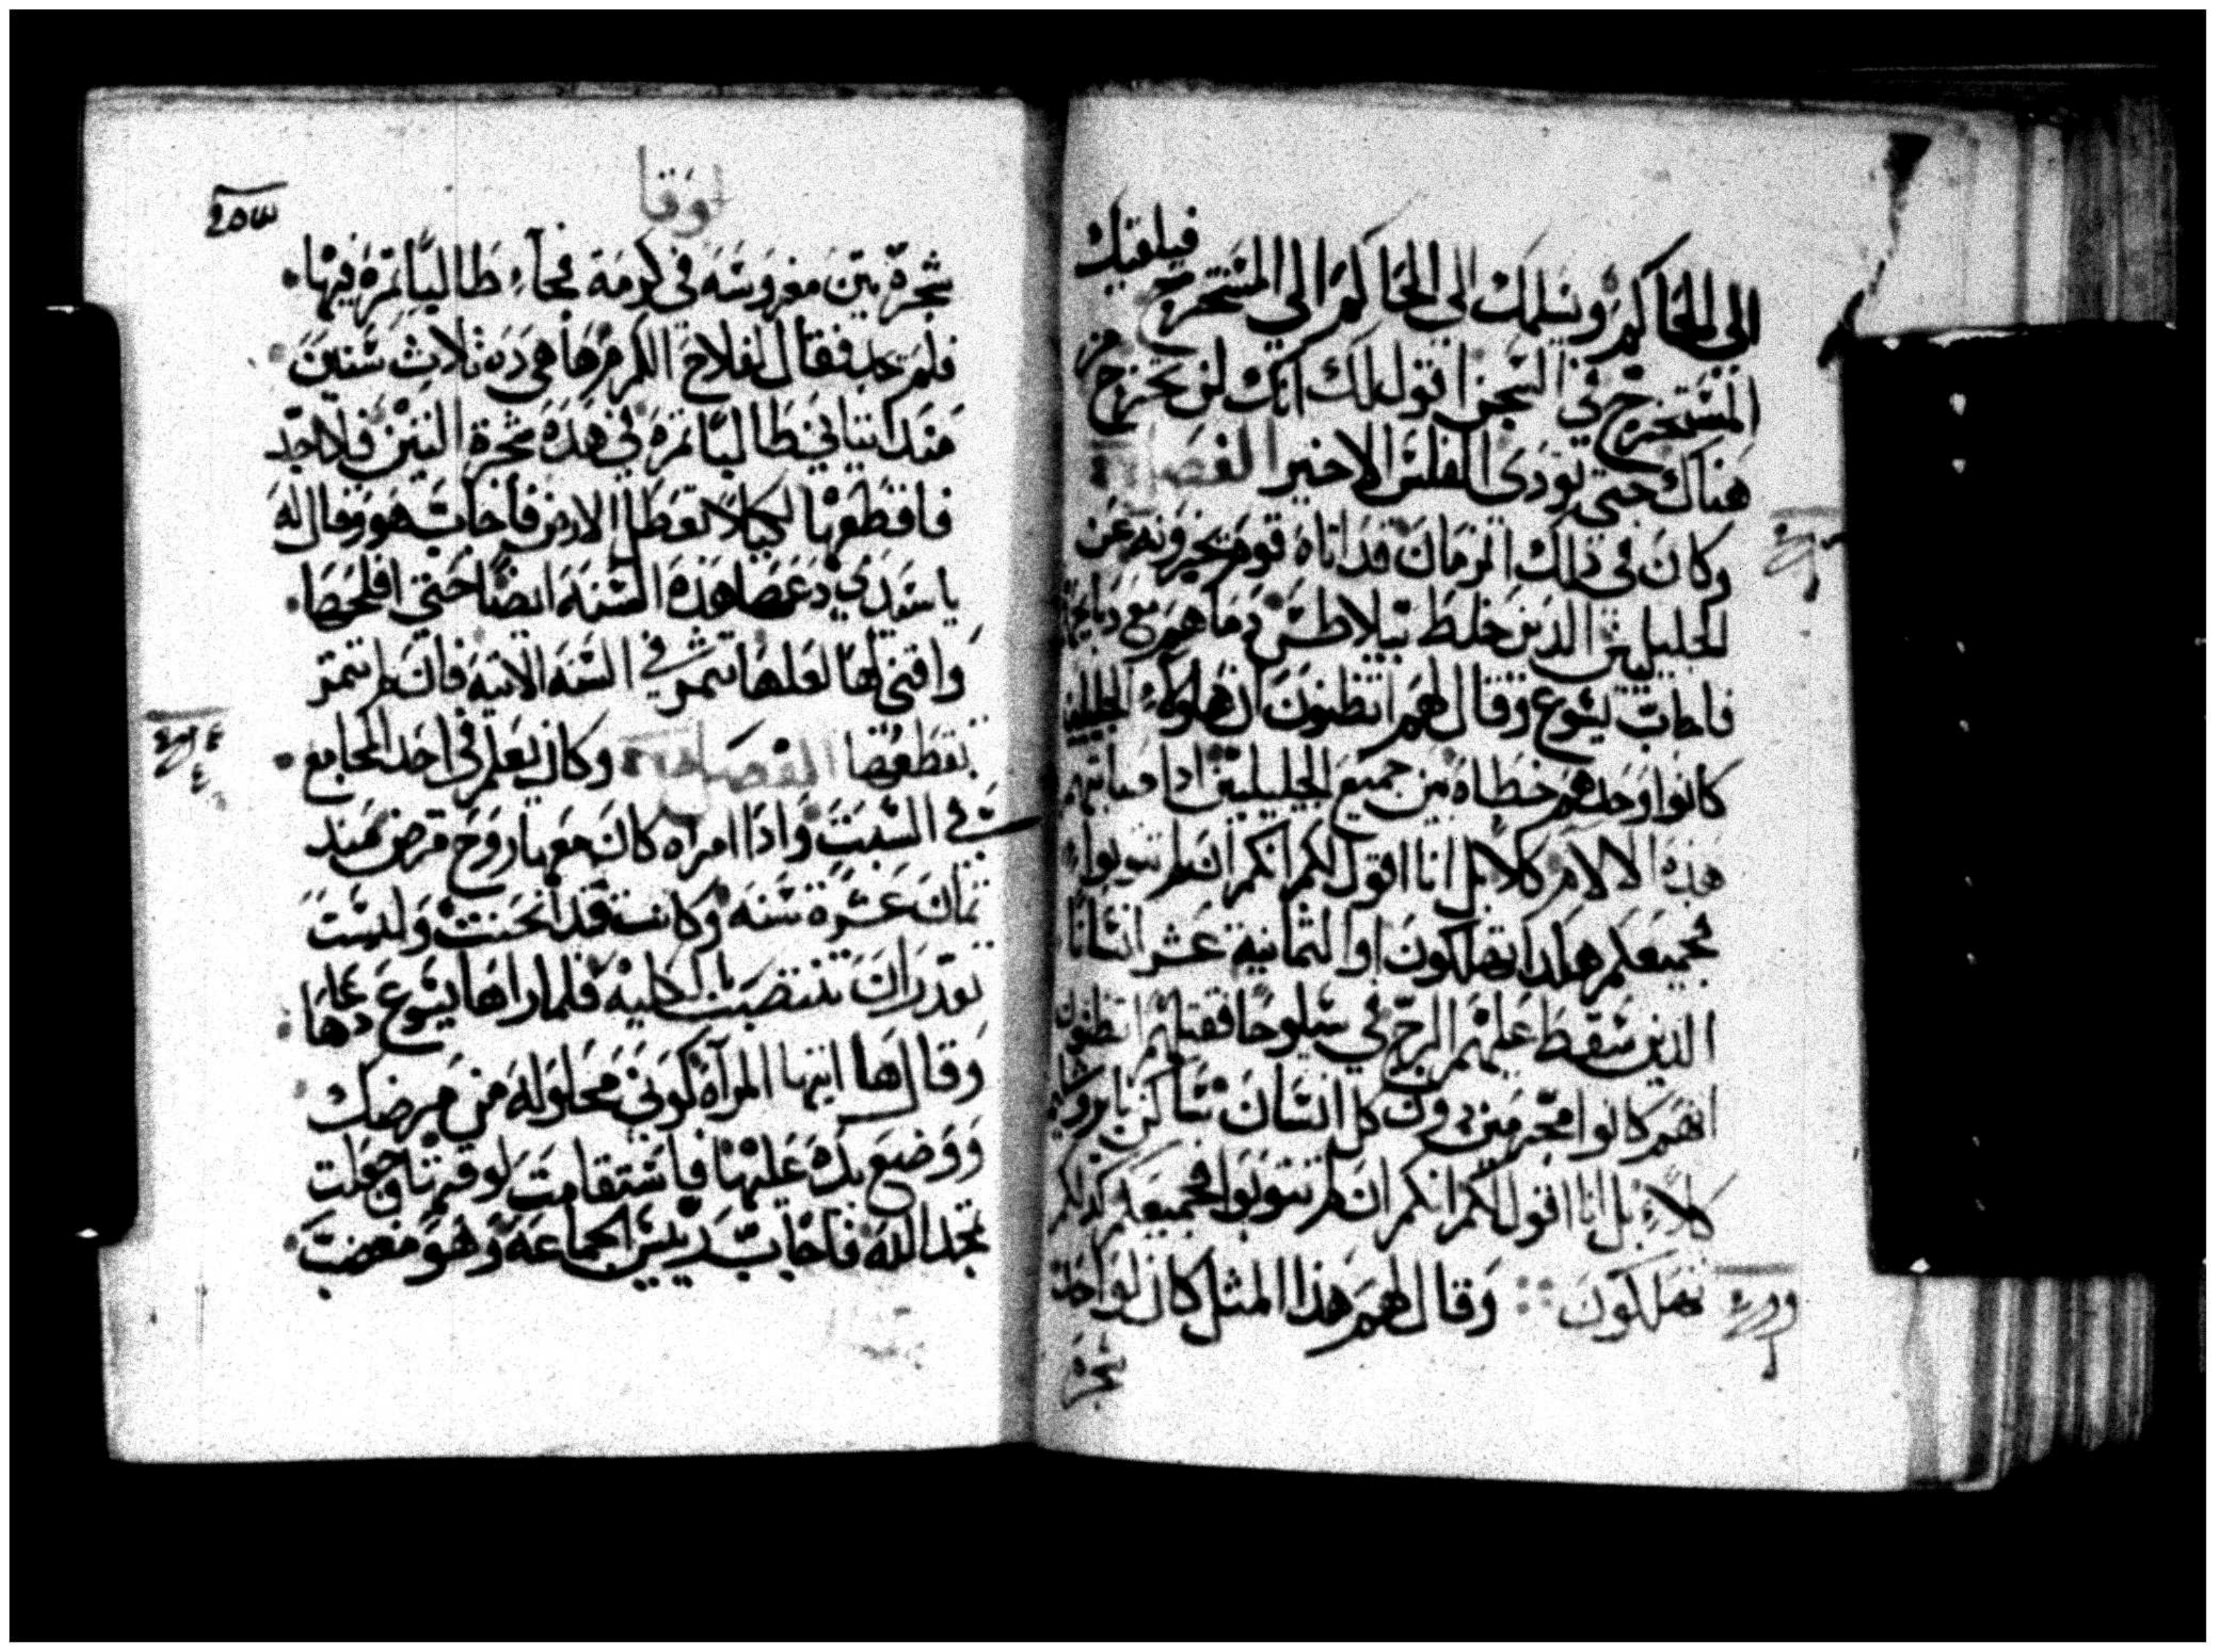 الي الحاكم ويسلمك الي الحاكم الي المستخرج فيلقيك
المستخرج في السجن اقول لك انك لن تخرج من
هناك حتي تودى الفلس الاخير الفصل
وكان في ذلك الزمان قد اتاه قوم يخبرونه عن
الجليليين الذين خلط بيلاطس دماهم مع دبايحهم
فاجاب يسوع وقال لهم اتظنون ان هاولاء الجليليين
كانوا وحدهم خطاه من جميع الجليليين اذا اصابتهم
هذه الالام كلا بل انا اقول لكم انكم ان لم تتوبوا
فجميعكم هكدا تهلكون او الثمانية عشر انسانا
الذين سقط عليهم البرج في سيلوحا فقتلهم اتظنون
انهم كانوا مجرمين دون كل انسان ساكن بايروشليم
كلا بل انا اقول لكم انكم ان لم تتوبوا فجميعكم كدلكم
تهلكون وقال لهم هذا المثل كان لواحد
شجرة
لوقا
شجرة تين مغروسه في كرمة فجاء طالبا ثمرة فيها
فلم يجد فقال لفلاح الكرم ها هي ده ثلاث سنين
مند اتياني طالبا ثمره في هذه شجرة التين فلا اجد
فاقطعها لكيلا تعطل الارض فاجاب هو وقال له
يا سيدي دعها هذه السنه ايضا حتي افلحها
وافتي لها لعلها تثمر في السنه الاتيه فان لم تثمر
تقطعها الفصل وكان يعلم في احد المجامع
في السبت واذا امراه كان معها روح مرض مند
ثمان عشرة سنه وكانت قد انحنت وليست
تقدر ان تنتصب بالكليه فلما راها يسوع دعاها
وقال لها ايتها المرآه كوني محلوله من مرضك
ووضع يده عليها فاستقامت لوقتها وجعلت
تمجد الله فاجاب رييس الجماعه وهو مغضب